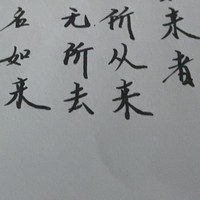 来者
所从来
无所去
名如来